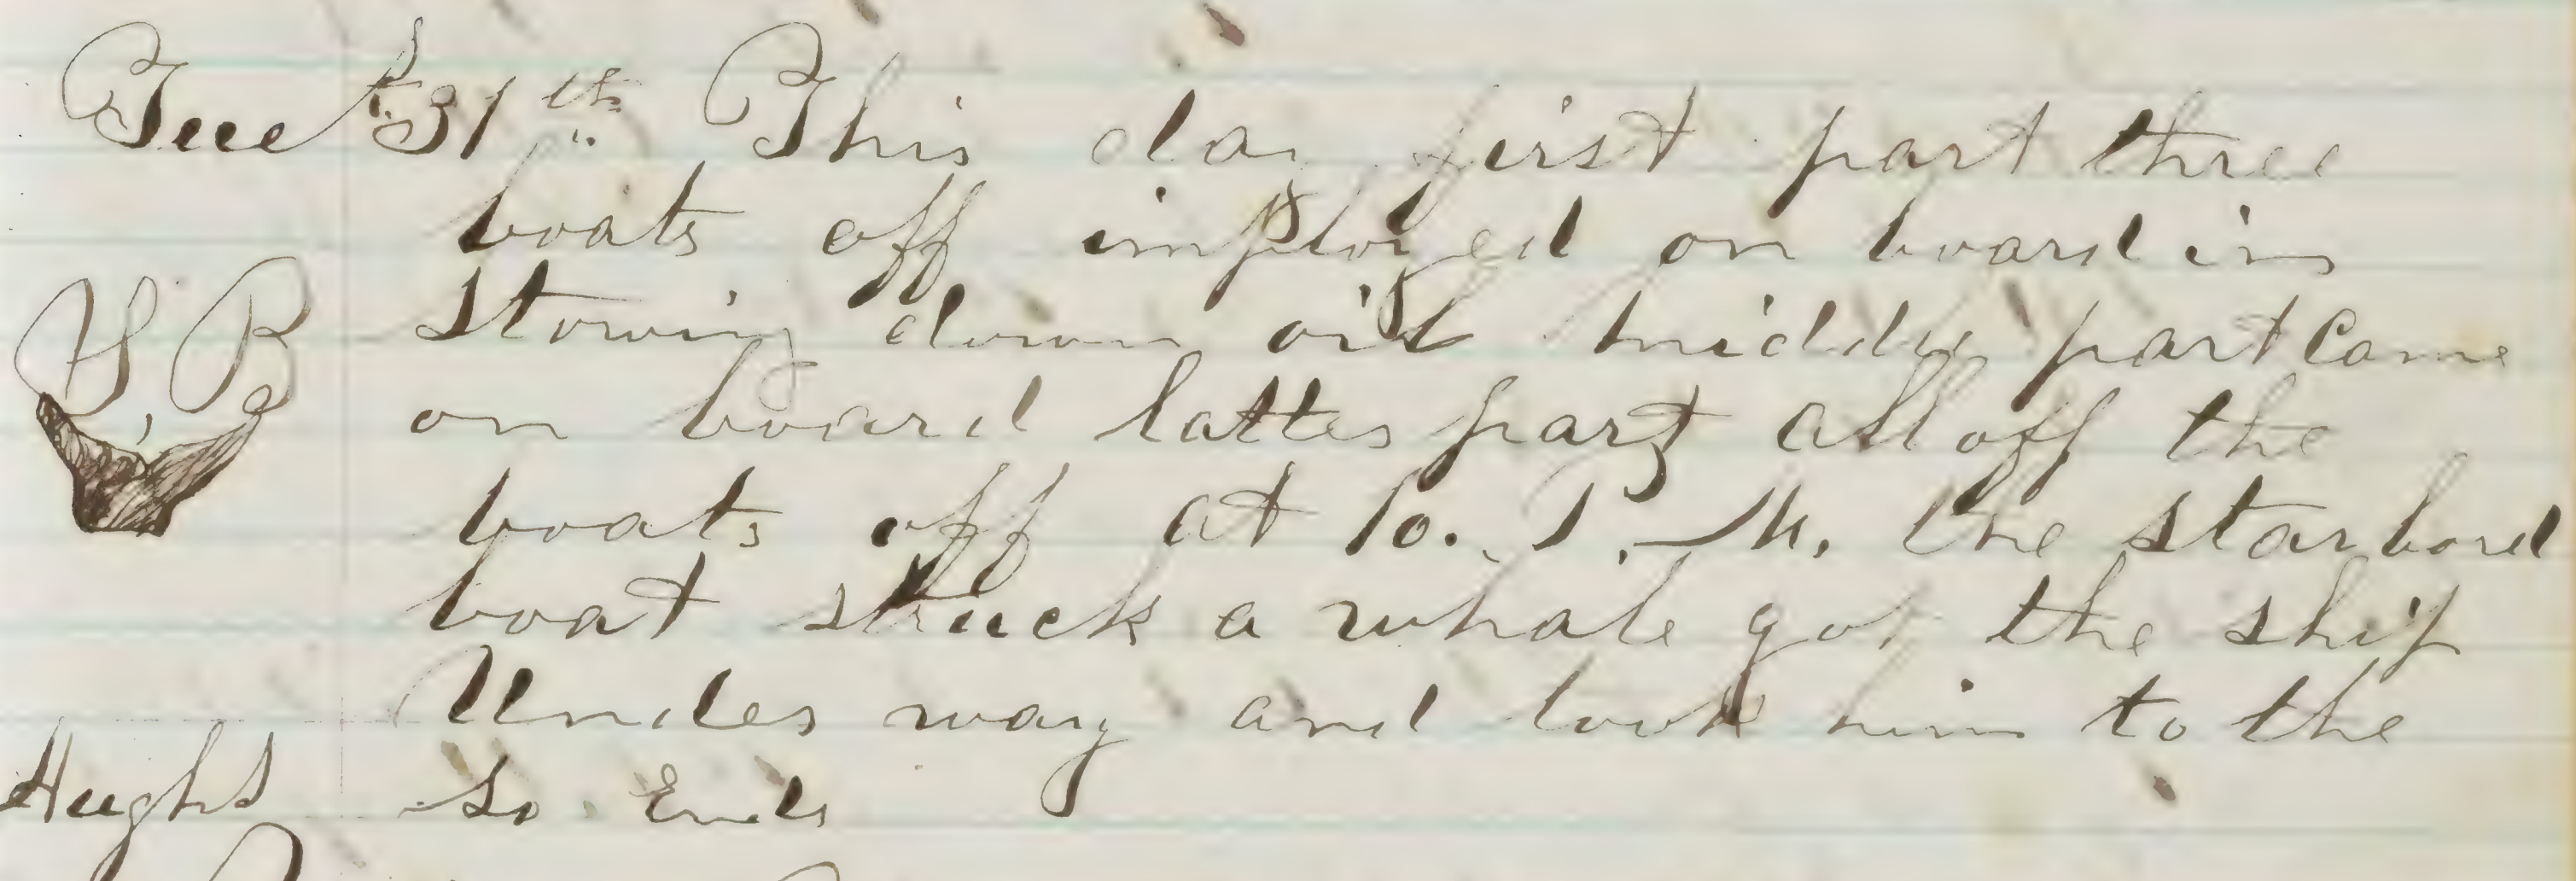 Tues 31th This day first part three
boats off imployed on board in
stowing down oil middle part came
S, B
on board latter part all off the
boats off at 10. P. M. the starbord
boat struck a whale got the ship
Under way and took him to the
So Ends